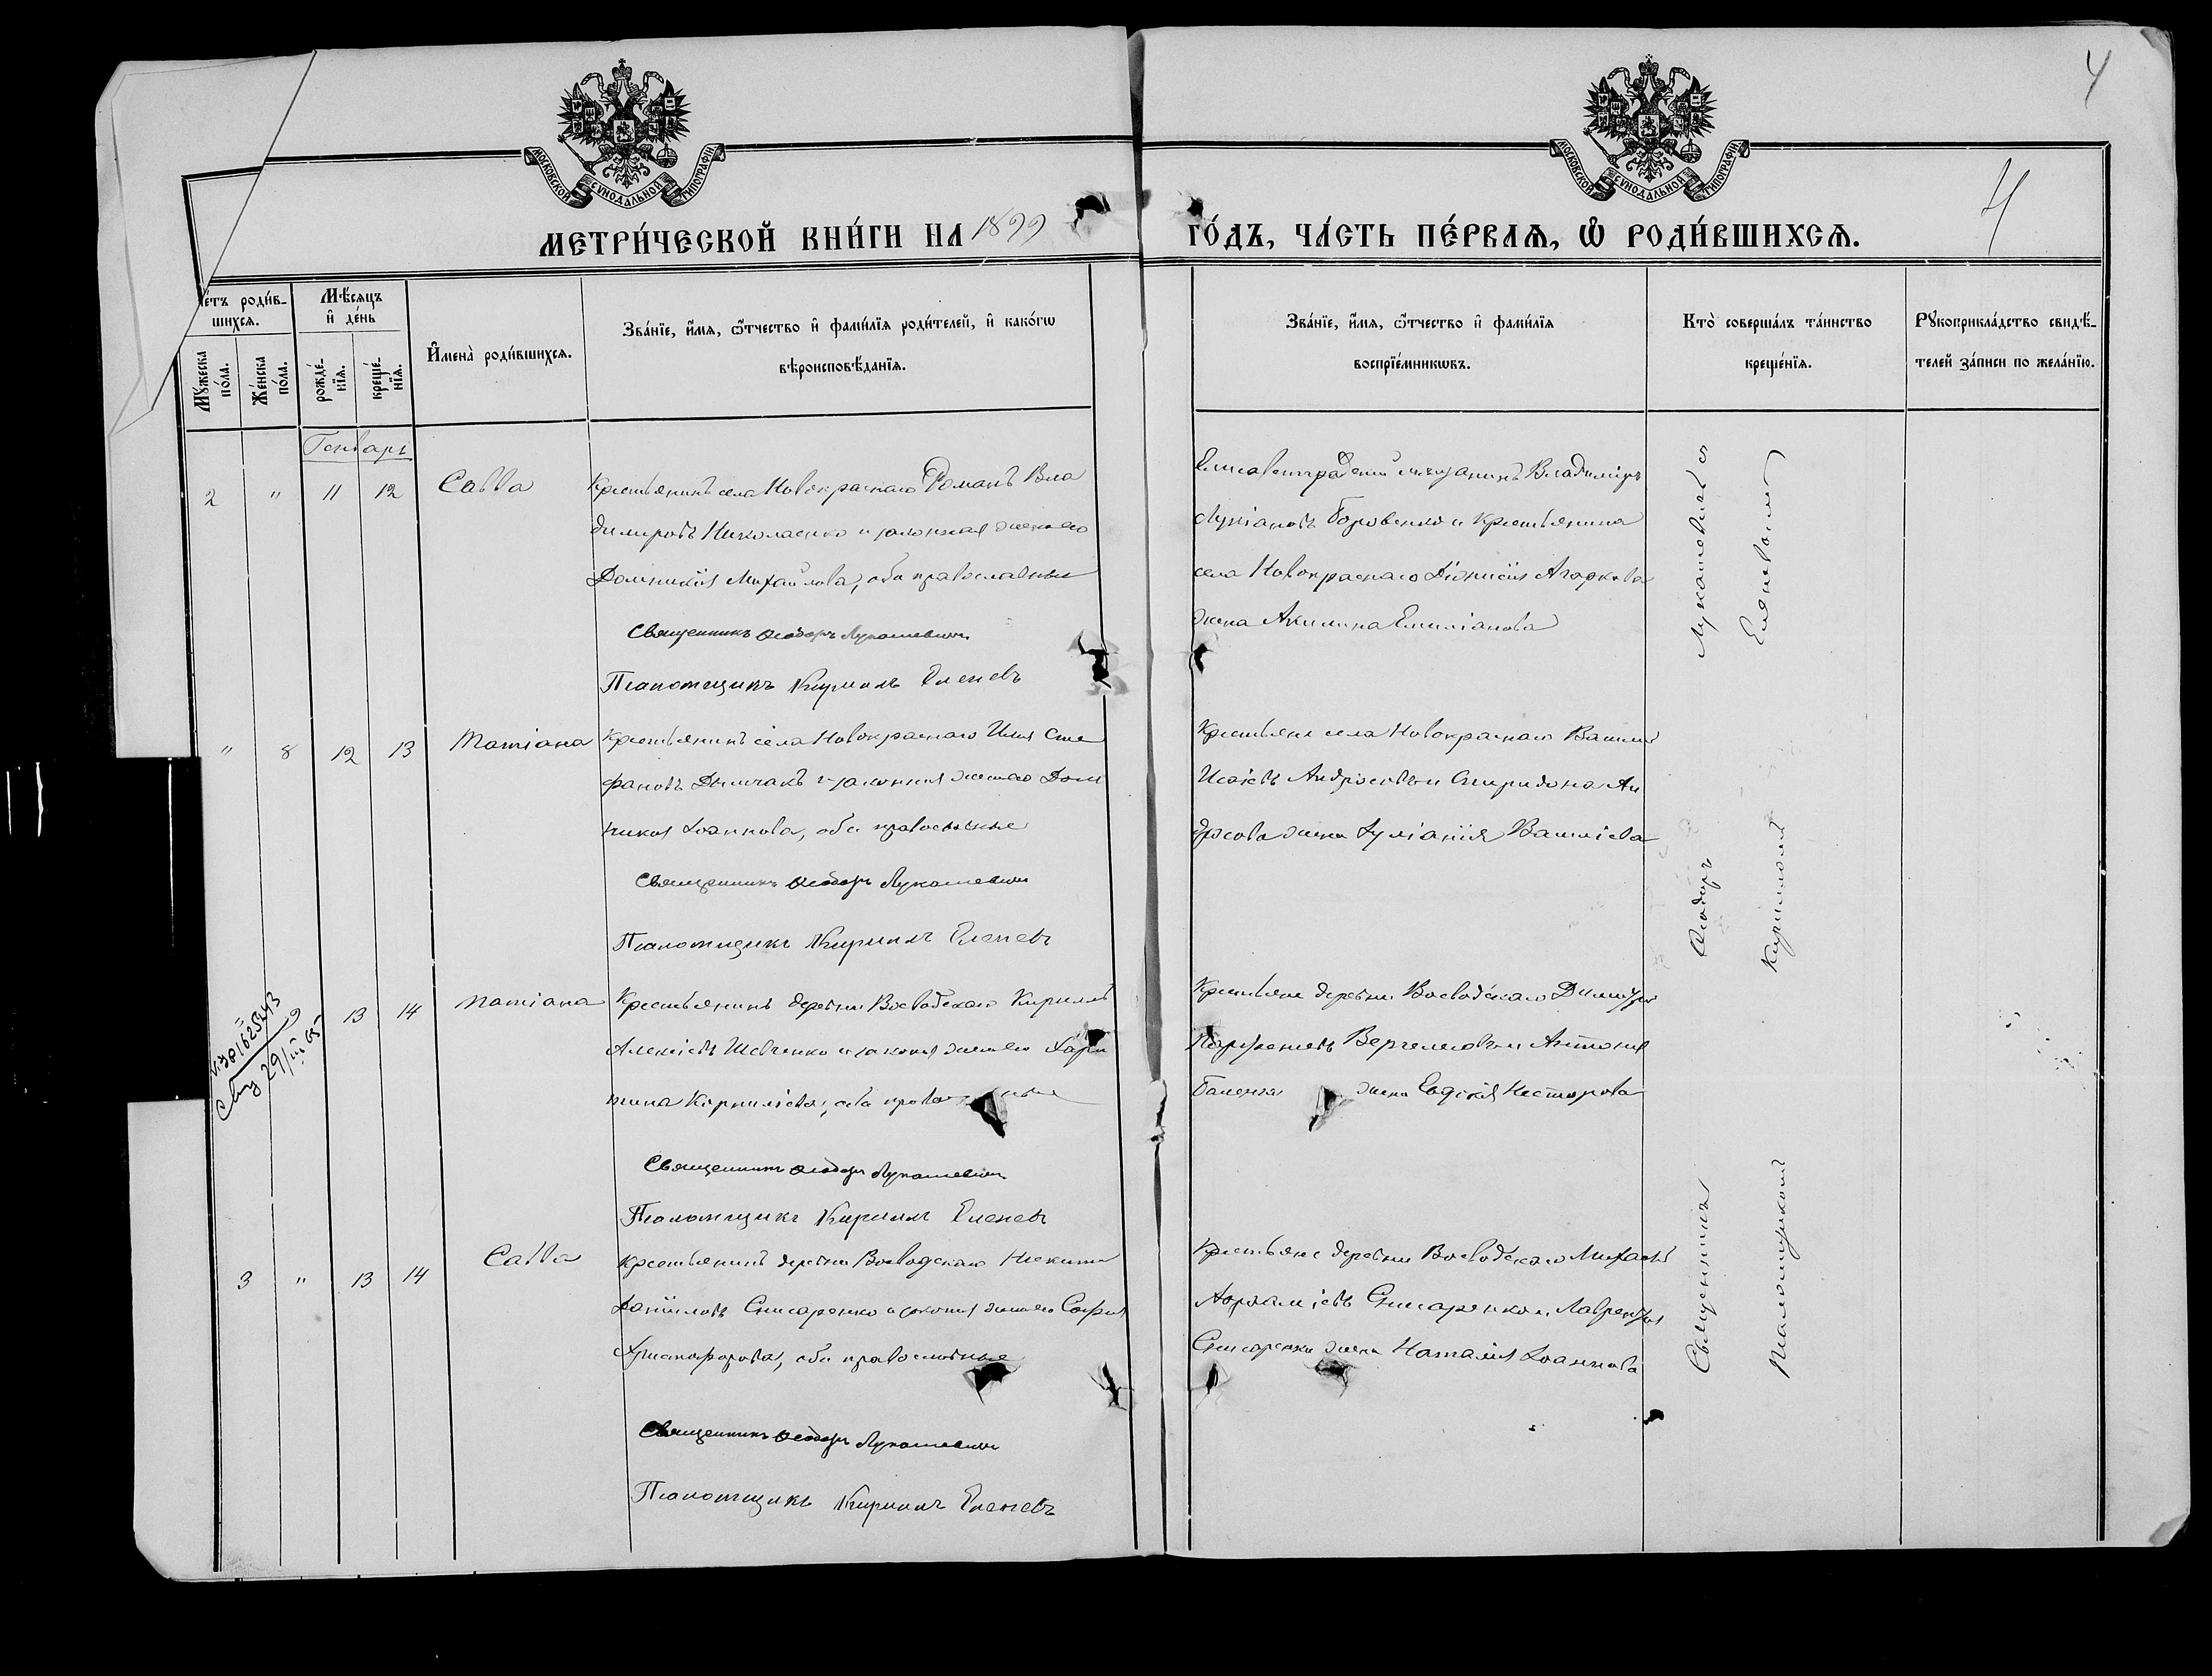 4
МОСКОВСКОЙ СУНОДАЛЬНОЙ ТИПОГРАФІИ
МОСКОВСКОЙ СУНОДАЛЬНОЙ ТИПОГРАФІИ
4
МЕТРИ́ЧЕСКОЙ КНИ́ГИ НА 1899
ГО́ДЪ, ЧА́СТЬ ПЕ́РВАѦ, Ѽ РОДИ́ВШИХСѦ.
е́тъ роди́в-
шихсѧ.
Мѣ́сяцъ
и҆ де́нь
Му́жеска по́ла.
Же́нска по́ла.
рожде́-
нїѧ.
креще́-
нїѧ.
И҆мена̀ роди́вшихсѧ.
Зва́нїе, и҆́мѧ, ѻ҆́тчество и҆ фами́лїѧ роди́телей, и҆ како́гѡ
вѣроисповѣ́данїѧ.
Зва́нїе, и҆́мѧ, ѻ҆́тчество и҆ фами́лїѧ
воспрїе́мникѡвъ.
Кто̀ соверша́лъ та́инство
креще́нїѧ.
Рꙋкоприкла́дство свидѣ́-
телей за́писи по жела́нїю.
Генварь
2 " 11 12 Савва
Крестьянинъ села Новокраснаго Романъ Вла
димировъ Николаенко и законная жена его
Домникія Михайлова, оба православные
Священникъ Ѳеодоръ Лукашевичъ
Псаломщикъ Кириллъ Еленевъ
Елисаветградскій мѣщанинъ Владиміръ
Лукіановъ Боровенко и крестьянина
села Новокраснаго Діонисія Агаркова
жена Акилина Емиліанова
" 8 12 13 Татіана
Крестьянинъ села Новокраснаго Илія Сте
фановъ и законная жена его Дом
никія Іоаннова, оба православные
Священникъ Ѳеодоръ Лукашевичъ
Псаломщикъ Кириллъ Еленевъ
Крестьяне села Новокраснаго Василій
Исаіевъ Андросовъ и Спиридона Ан
дросова жена Іуліанія Василіева
29/III 65
13 14 Татіана
Крестьянинъ деревни Воеводскаго Кириллъ
Алексіевъ Шевченко и законная жена его Хари
тина Корниліева, оба православные
Священникъ Ѳеодоръ Лукашевичъ
Псаломщикъ Кириллъ Еленевъ
Крестьяне деревни Воеводскаго Димитрій
Парфеніевъ и Антонія
жена Евдокія Несторова
3 " 13 14 Савва
Крестьянинъ деревни Воеводскаго Никита
Даніиловъ Снисаренко и законная жена его Софія
Христофорова, оба православные
Священникъ Ѳеодоръ Лукашевичъ
Псаломщикъ Кириллъ Еленевъ
Крестьяне деревни Воеводскаго Михаилъ
Снисаренко и Лаврентія
Снисаренки жена Наталія Іоаннова
Священникъ Ѳеодоръ Лукашевичъ съ
Псаломщикомъ Кирилломъ Еленевымъ